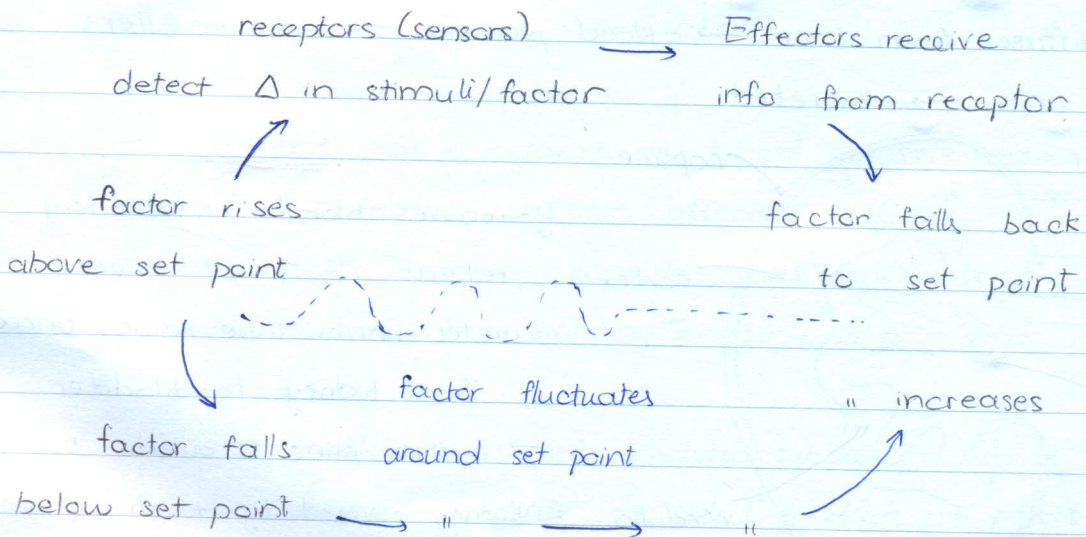 receptors (sensors) → Effectors receive
detect Δ in stimuli/factor info from receptor
factor rises factor falls back
above set point to set point
factor fluctuates " increases
factor falls around set point
below set point → " → "